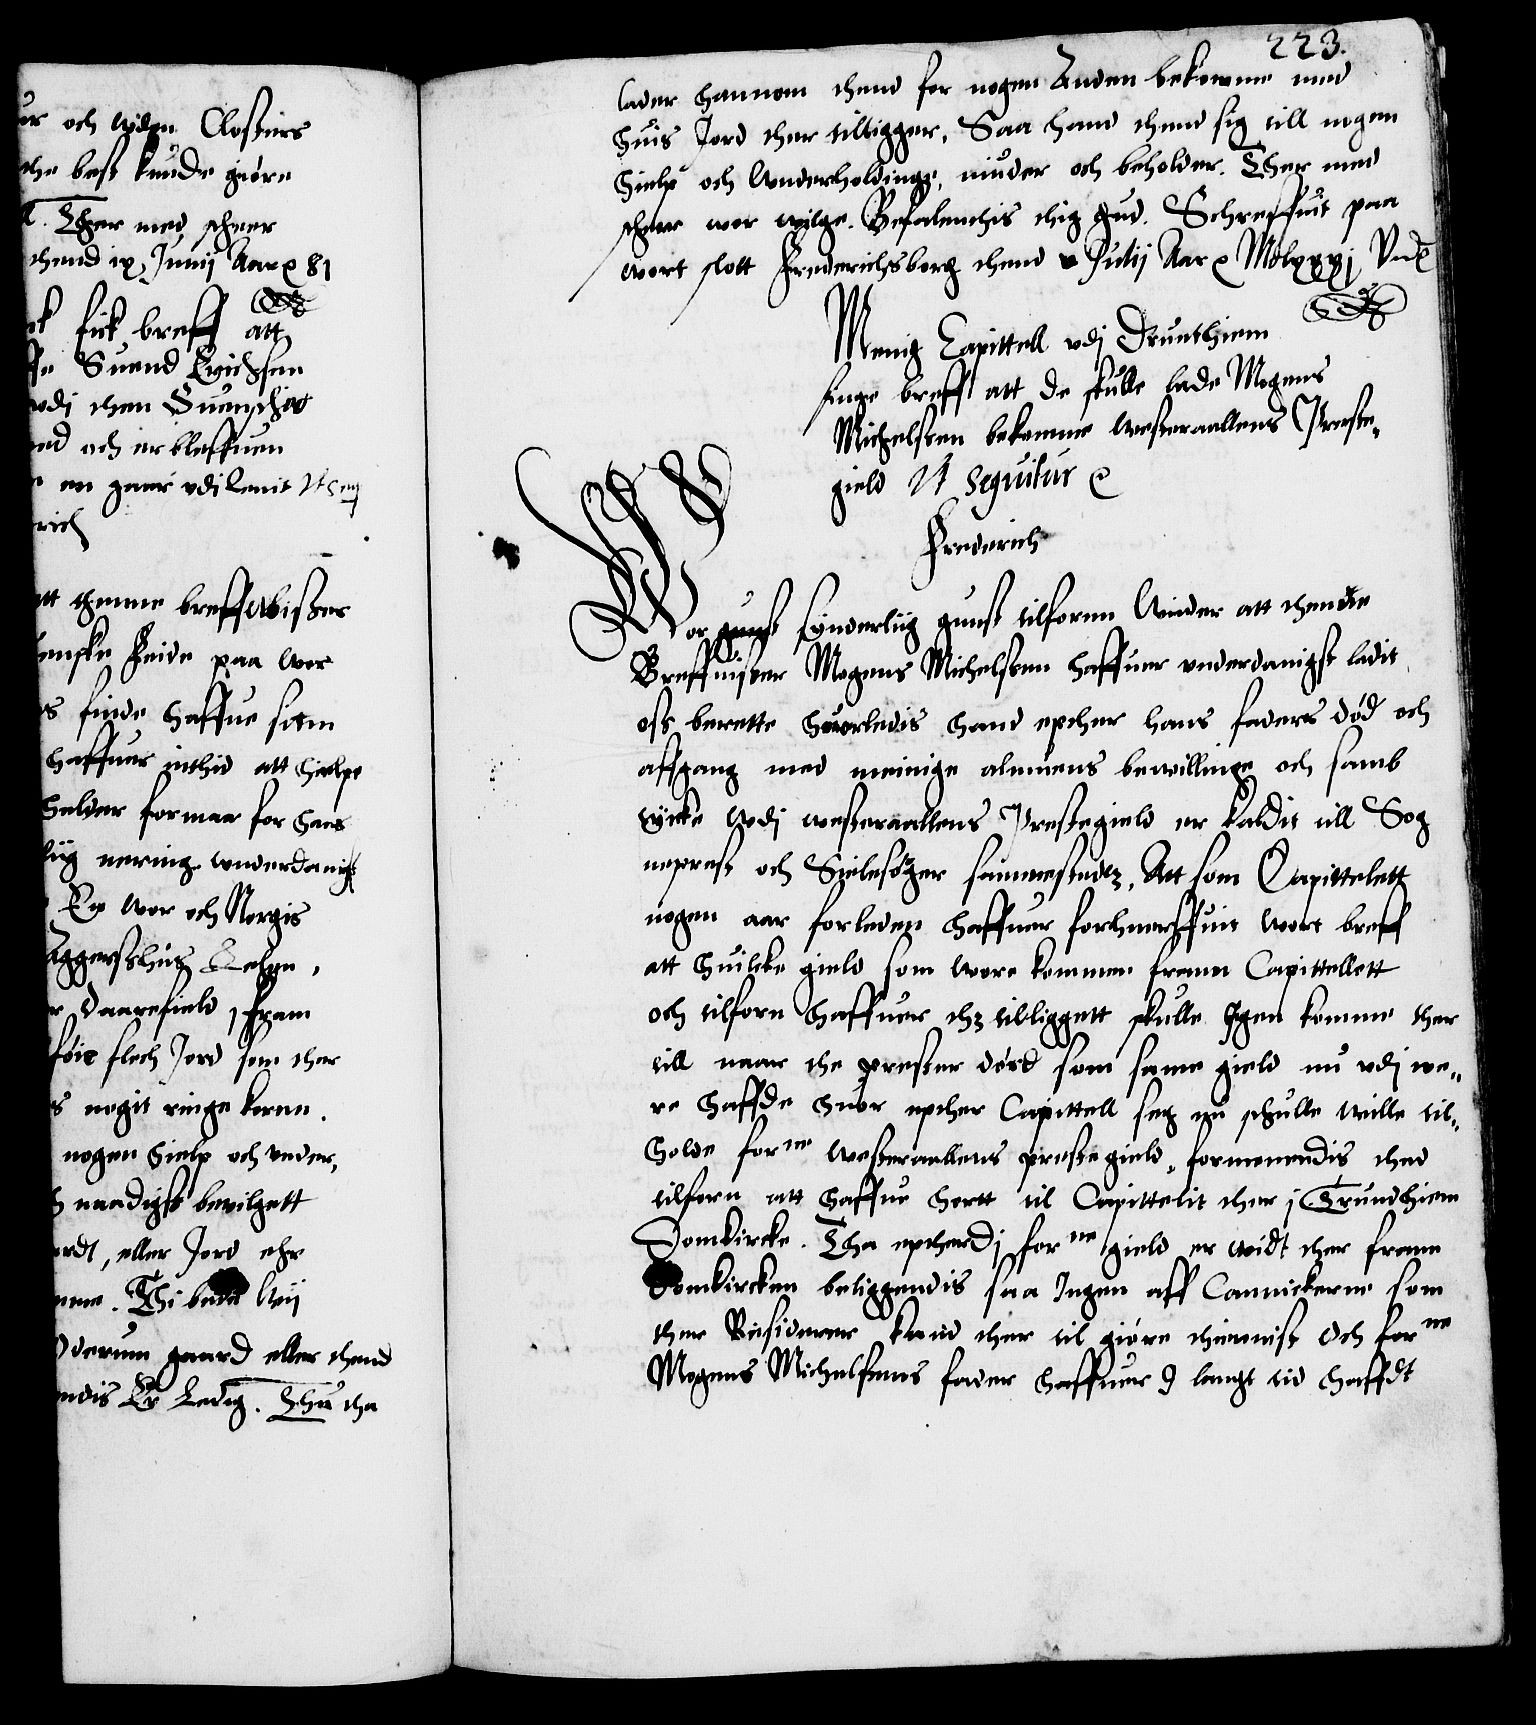 ur och widen Closters
the best kunde giøre
Ther med scheer
thend ix Junij Aar ɛ 81
fick breff att
Suend Erichsen
udi then Suenschøe
och er bleffuen
en gaar udi lenit Ut seq
rich
att thenne breffwiser
enske Feide paa wor
finde haffue som
haffuer inthid att hielpe
helder formaar for hans
lig nering. wnderdanigst
Er wor och Norgis
Aggershus Lehen,
Daarefield, fram
føie flech Jord som ther
nogit ringe korn.
nogen hielp och under,
naadigst bewilgett
ordt, eller Jord ehr
Thi bede Wij
Oderum gaard eller thend
endis Er Ledig. Thu tha
223.
lader hannom thend for nogen Anden bekomme med
huis Jord ther tilligger, Saa hand thend sig till nogen
hielp och Wnderholdinge, niuder och beholder. Ther med
scheer wor wilge. Befalendis thig Gud. Schreffuit paa
wort slott Frederichsborg thend v Julij Aar ɛ Mdlxxxj Vndɛ
Menig Capittell udj Drunthiem
finge breff att de skulle lade Mogens
Michelssen bekomme westeraallens Preste,
gield Ut sequitur ɛ
Frederich
Wor gunst synderlig gunst tilforn Wider att thendne
Breffuiser Mogens Michelssen haffuer underdanigst ladit
oss berette huorledis hand epther hans faders død och
affgang med meinige almuens bewillinge och samb
tycke Wdj westeraallens Prestegield er kaldit till Sog
neprest och Sielesørger sammestedtz, Att som Capittelett
nogen aar forleden haffuer forhuerffuit Wort breff
att huilcke gield som Wore kommen frann Capittellett
och tilforn haffuer thz tilliggett skulle Igen komme ther
till naar the prester døde som same gield nu udj we,,
re haffde huor epther Capittell seg nu schulle wille til,,
holde forne westeraallens prestegield, formenendis thed
tilforn att haffue hørtt til Capittelit ther j Trundhiem
Domkircke. Tha epther dj forne gield er widt ther frann
Domkircken beliggendis saa Ingen aff Cannickerne som
ther Residerer kand ther til giøre thienniste Och forne
Mogens Michelsens fader haffuer I langt tid haffdt